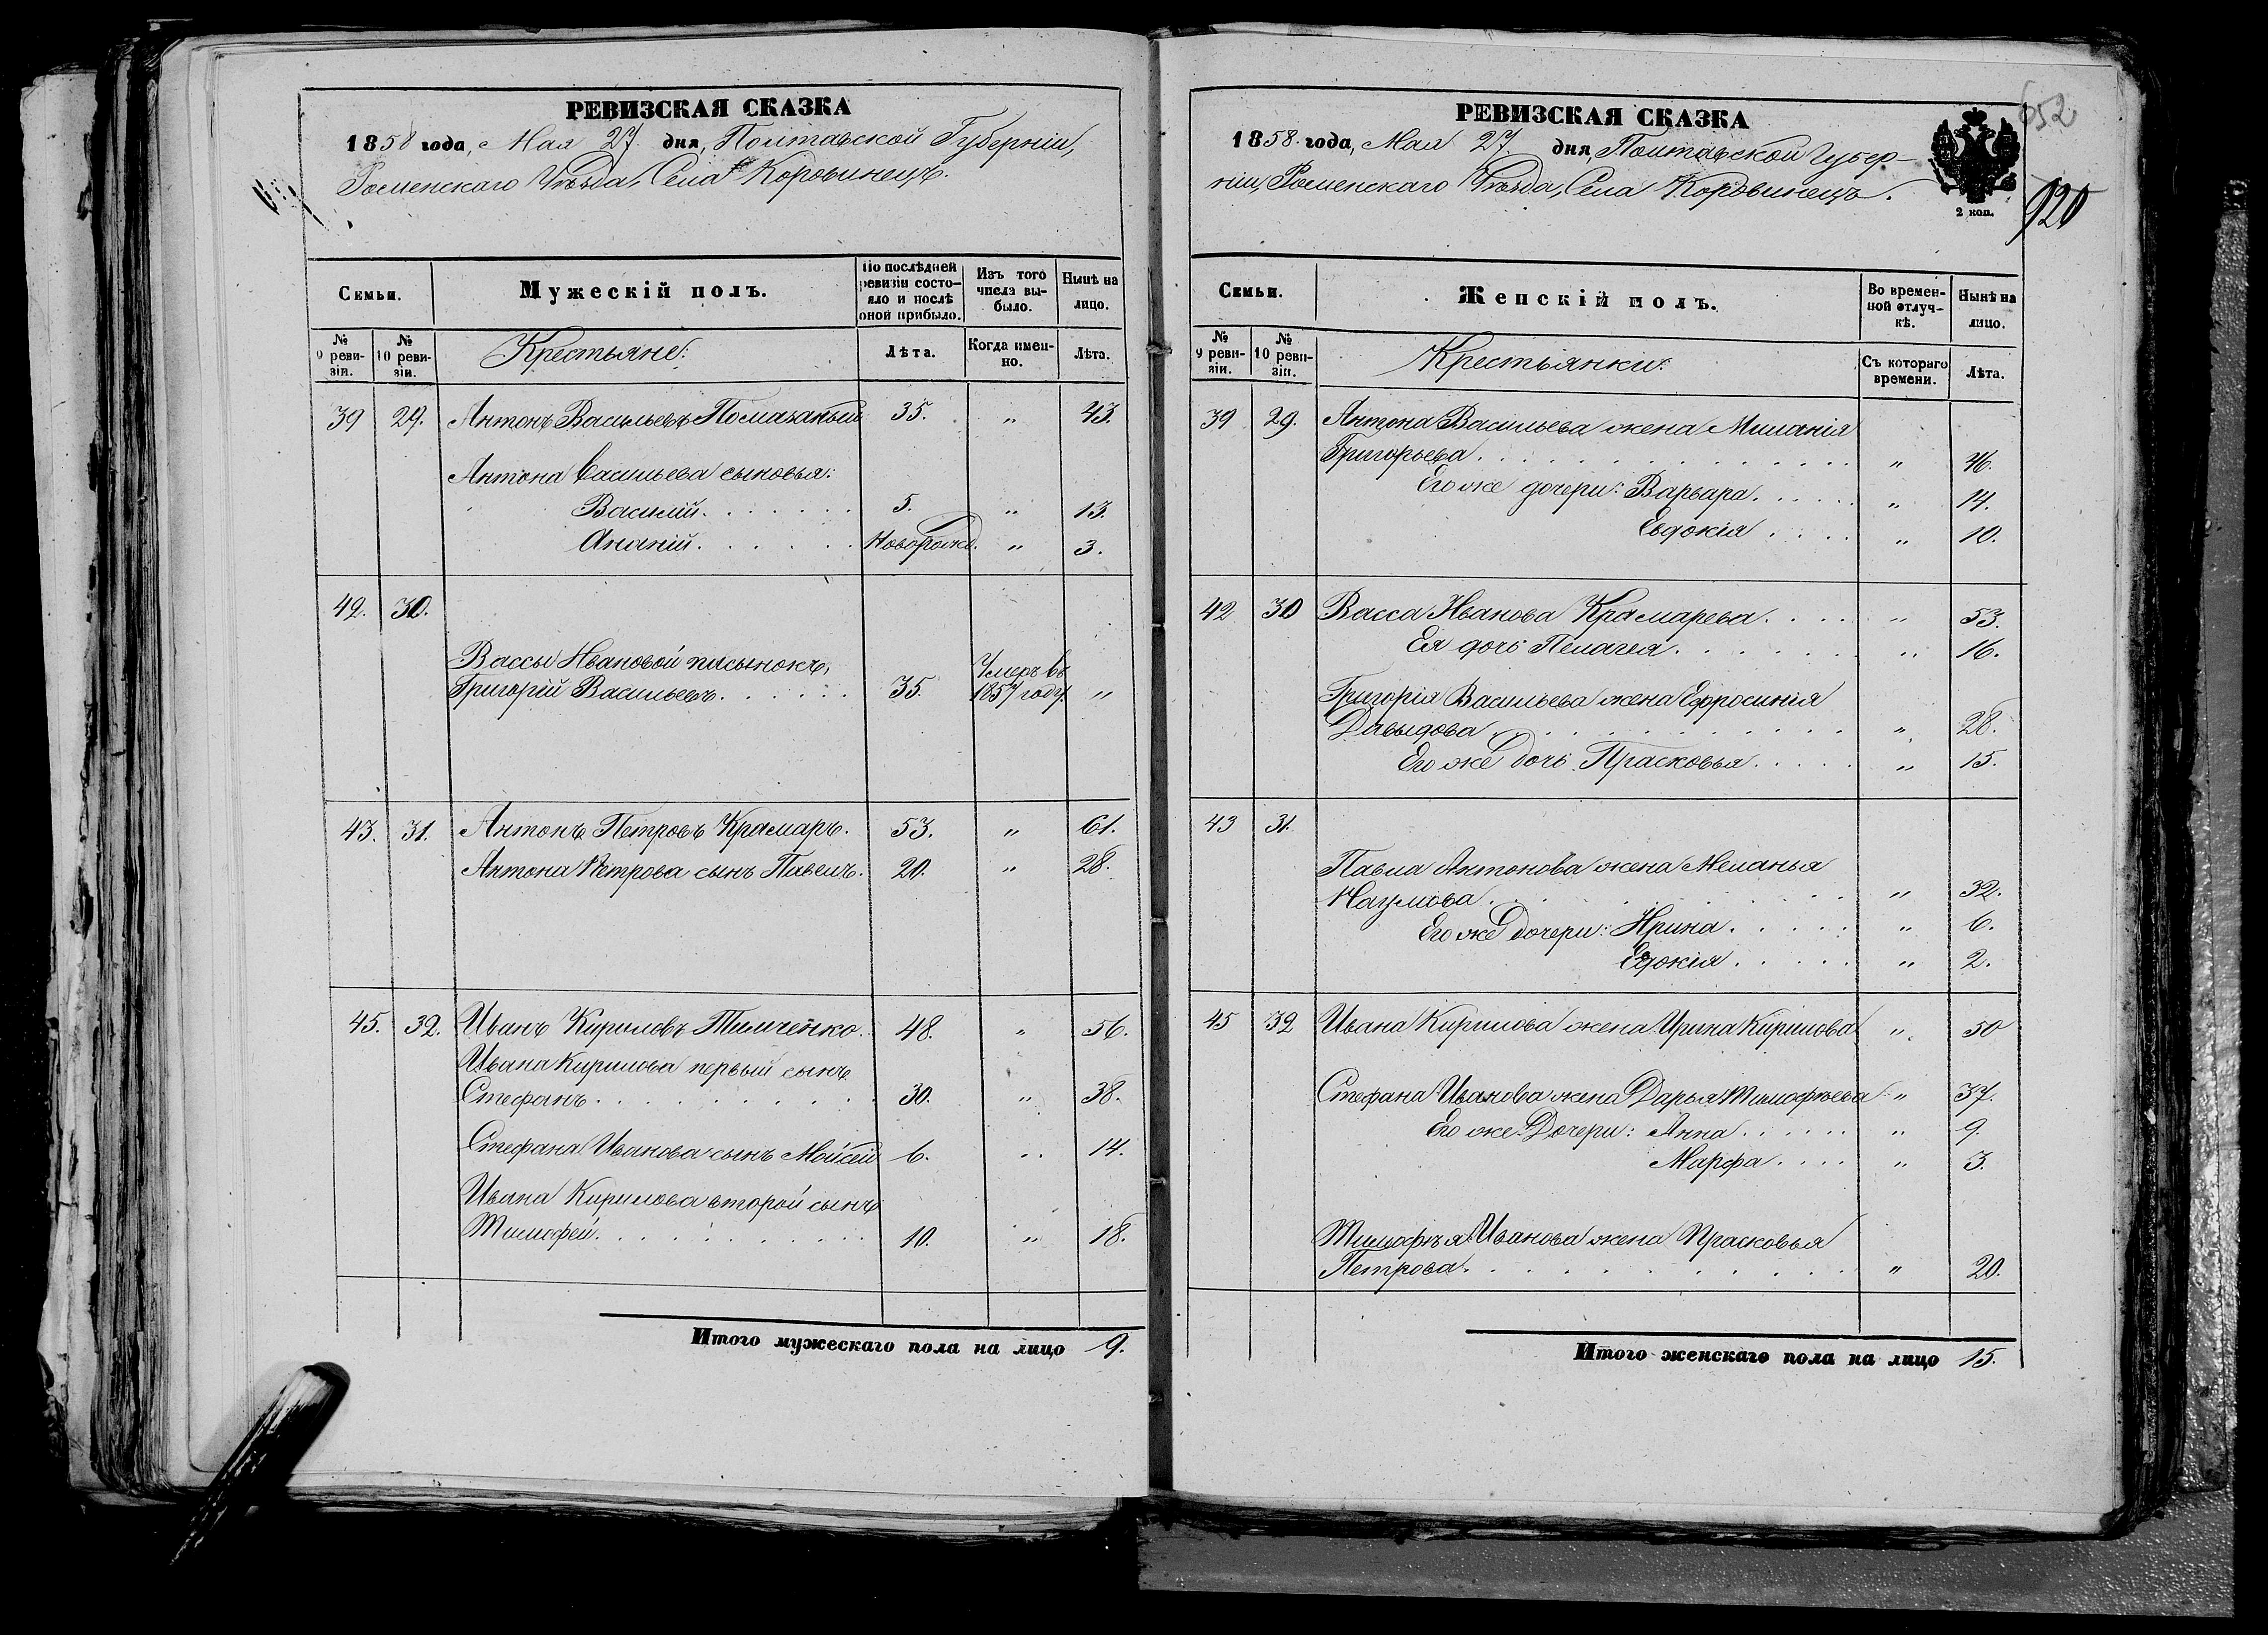 РЕВИЗСКАЯ СКАЗКА
1858 года, Мая 27 дня, Полтавской Губерніи,
Роменскаго Уѣзда, Села Коровинецъ.
Семьи.
Мужескій полъ.
По послѣдней ревизіи состояло и послѣ оной прибыло.
Изъ того числа выбыло.
Нынѣ на лицо.
№ 9 ревизіи.
№ 10 ревизіи.
Крестьяне:
Лѣта.
Когда именно.
Лѣта.
39 29. Антонъ Васильевъ Помазаный 35. " 43.
Антона Васильева сыновья:
Василій. 5. " 13.
Ананій. Новорожд. " 3.
42. 30.
Вассы Ивановой пасынокъ,
Григорій Васильевъ. 35. Умеръ въ 1857 году. "
43. 31. Антонъ Петровъ Крамаръ. 53. " 61.
Антона Петрова сынъ Павелъ. 20. " 28.
45. 32. Иванъ Кириловъ Тимченко. 48. " 56.
Ивана Кирилова первый сынъ
Стефанъ. 30. " 38.
Стефана Иванова сынъ Мойсей 6. " 14.
Ивана Кирилова второй сынъ
Тимофей. 10. " 18.
Итого мужескаго пола на лицо 9.
РЕВИЗСКАЯ СКАЗКА
652
1858 года, Мая 27 дня, Полтавской Губер-
ніи, Роменскаго Уѣзда, Села Коровинецъ.
2 коп.
920
Семьи.
Женскій полъ.
Во временной отлучкѣ.
Нынѣ на лицо.
№ 9 ревизіи.
№ 10 ревизіи.
Крестьянки:
Съ котораго времени.
Лѣта.
39 29. Антона Васильева жена Миланія
Григорьева. " 46.
Его же дочери: Варвара. " 14.
Евдокія " 10.
42 30 Васса Иванова Крамарева. " 53.
Ея дочь Пелагея. " 16.
Григорія Васильева жена Ефросинія
Давыдова " 28.
Его же дочь Прасковья. " 15.
43 31.
Павла Антонова жена Меланья
Наумова. " 32.
Его же дочери: Ирина. " 6.
Евдокія. " 2.
45 32 Ивана Кирилова жена Ирина Кирилова " 50
Стефана Иванова жена Дарья Тимофѣева " 37.
Его же Дочери: Анна. " 9.
Марфа. " 3.
Тимофѣя Иванова жена Прасковья
Петрова. " 20.
Итого женскаго пола на лицо 15.